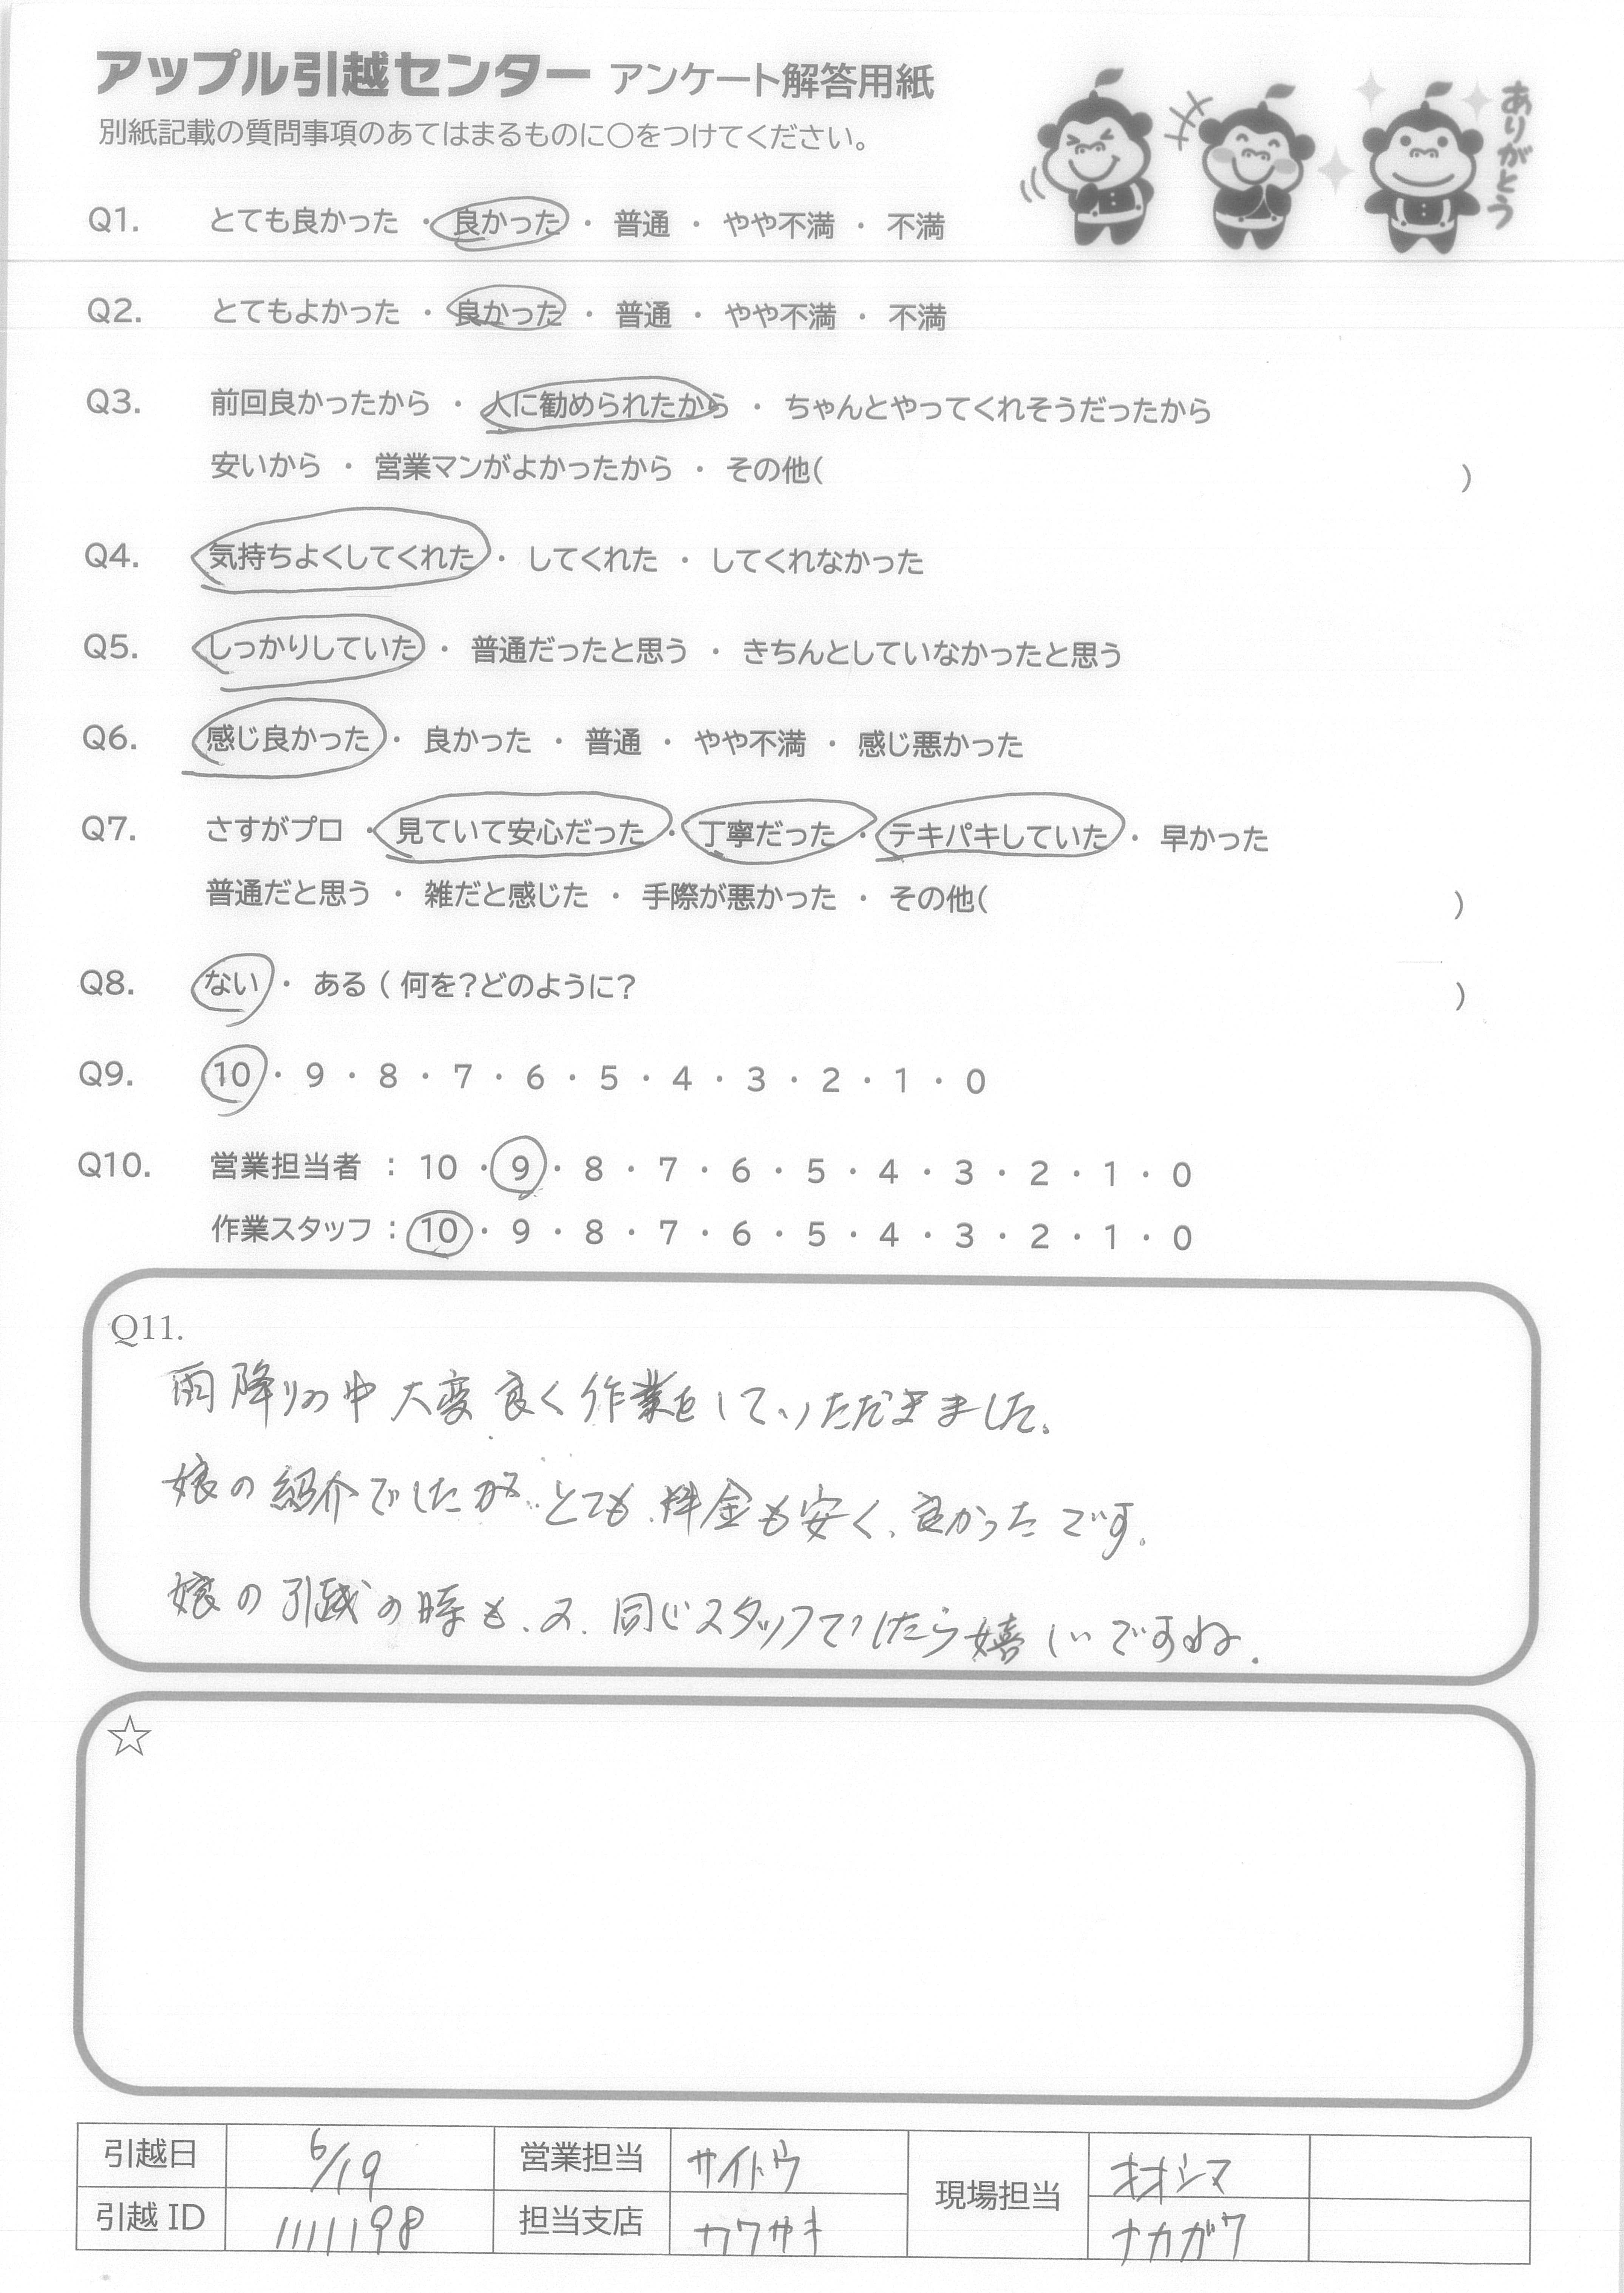 アップル引越センター アンケート解答用紙
別紙記載の質問事項のあてはまるものに〇をつけてください。
ありがとう
Q1. とても良かった ・ 良かった ・ 普通 ・ やや不満 ・ 不満
Q2. とてもよかった ・ 良かった ・ 普通 ・ やや不満 ・ 不満
Q3. 前回良かったから ・ 人に勧められたから ・ ちゃんとやってくれそうだったから
安いから ・ 営業マンがよかったから ・ その他( )
Q4. 気持ちよくしてくれた ・ してくれた ・ してくれなかった
Q5. しっかりしていた ・ 普通だったと思う ・ きちんとしていなかったと思う
Q6. 感じ良かった ・ 良かった ・ 普通 ・ やや不満 ・ 感じ悪かった
Q7. さすがプロ ・ 見ていて安心だった ・ 丁寧だった ・ テキパキしていた ・ 早かった
普通だと思う ・ 雑だと感じた ・ 手際が悪かった ・ その他( )
Q8. ない ・ ある ( 何を?どのように? )
Q9. 10 ・ 9 ・ 8 ・ 7 ・ 6 ・ 5 ・ 4 ・ 3 ・ 2 ・ 1 ・ 0
Q10. 営業担当者 : 10 ・ 9 ・ 8 ・ 7 ・ 6 ・ 5 ・ 4 ・ 3 ・ 2 ・ 1 ・ 0
作業スタッフ : 10 ・ 9 ・ 8 ・ 7 ・ 6 ・ 5 ・ 4 ・ 3 ・ 2 ・ 1 ・ 0
Q11.
雨降りの中大変良く作業をしていただきました。
娘の紹介でしたが、とても料金も安く、良かったです。
娘の引越の時も、又、同じスタッフでしたら嬉しいですね。
☆
引越日 6/19 営業担当 サイトウ 現場担当 オオシマ
引越 ID 1111198 担当支店 カワサキ ナカガワ